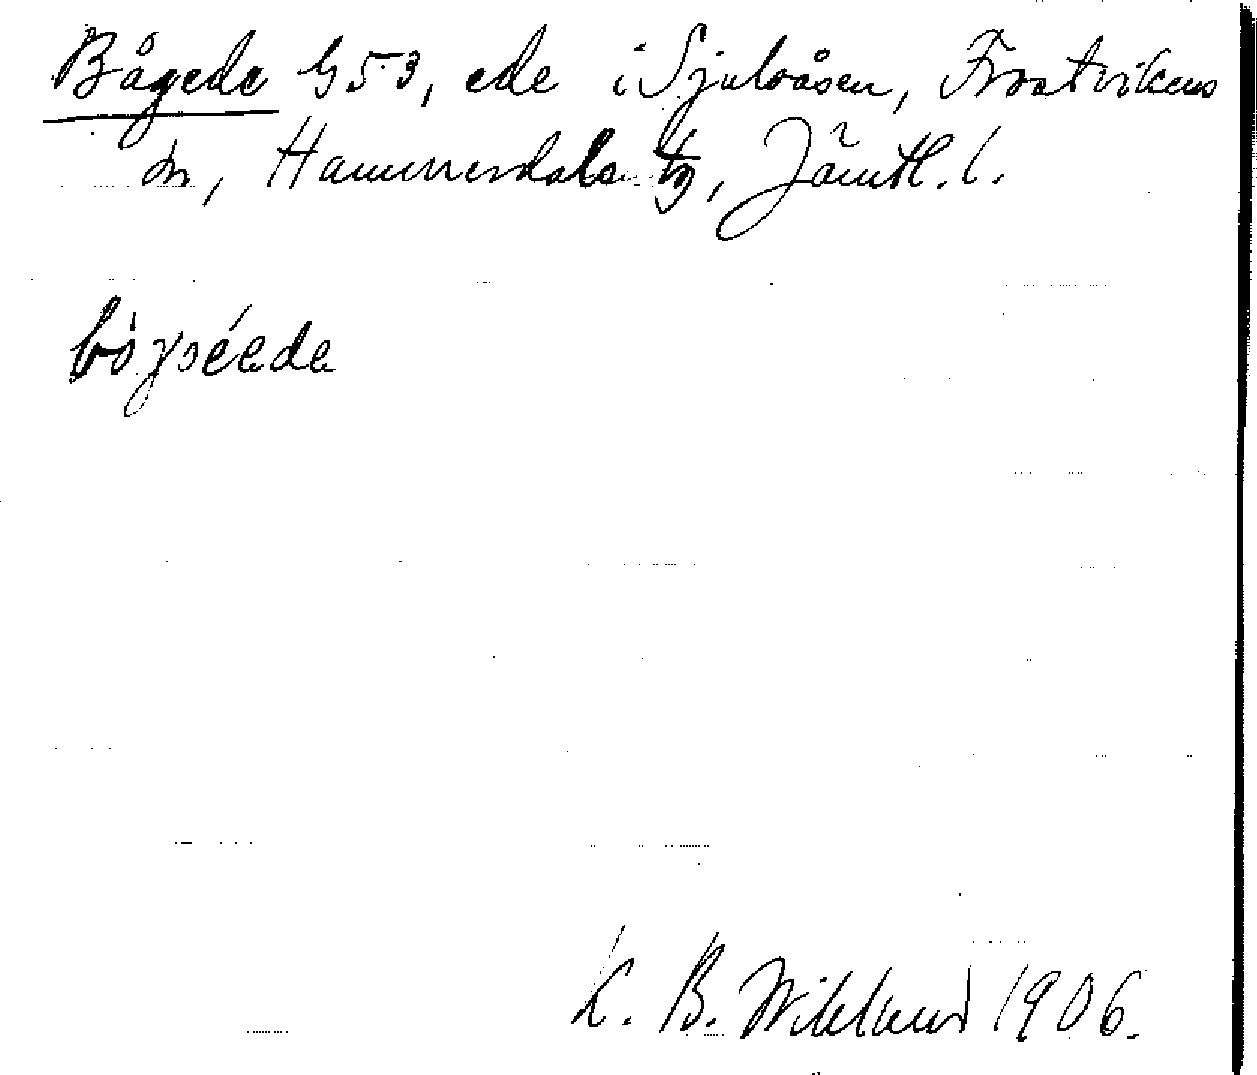 Bågede h 53, ede i Sjulsåsen, Frostvikens
sn, Hammerdals tg, Jämtl. l.
bòγəéede
K. B. Wiklund 1906.